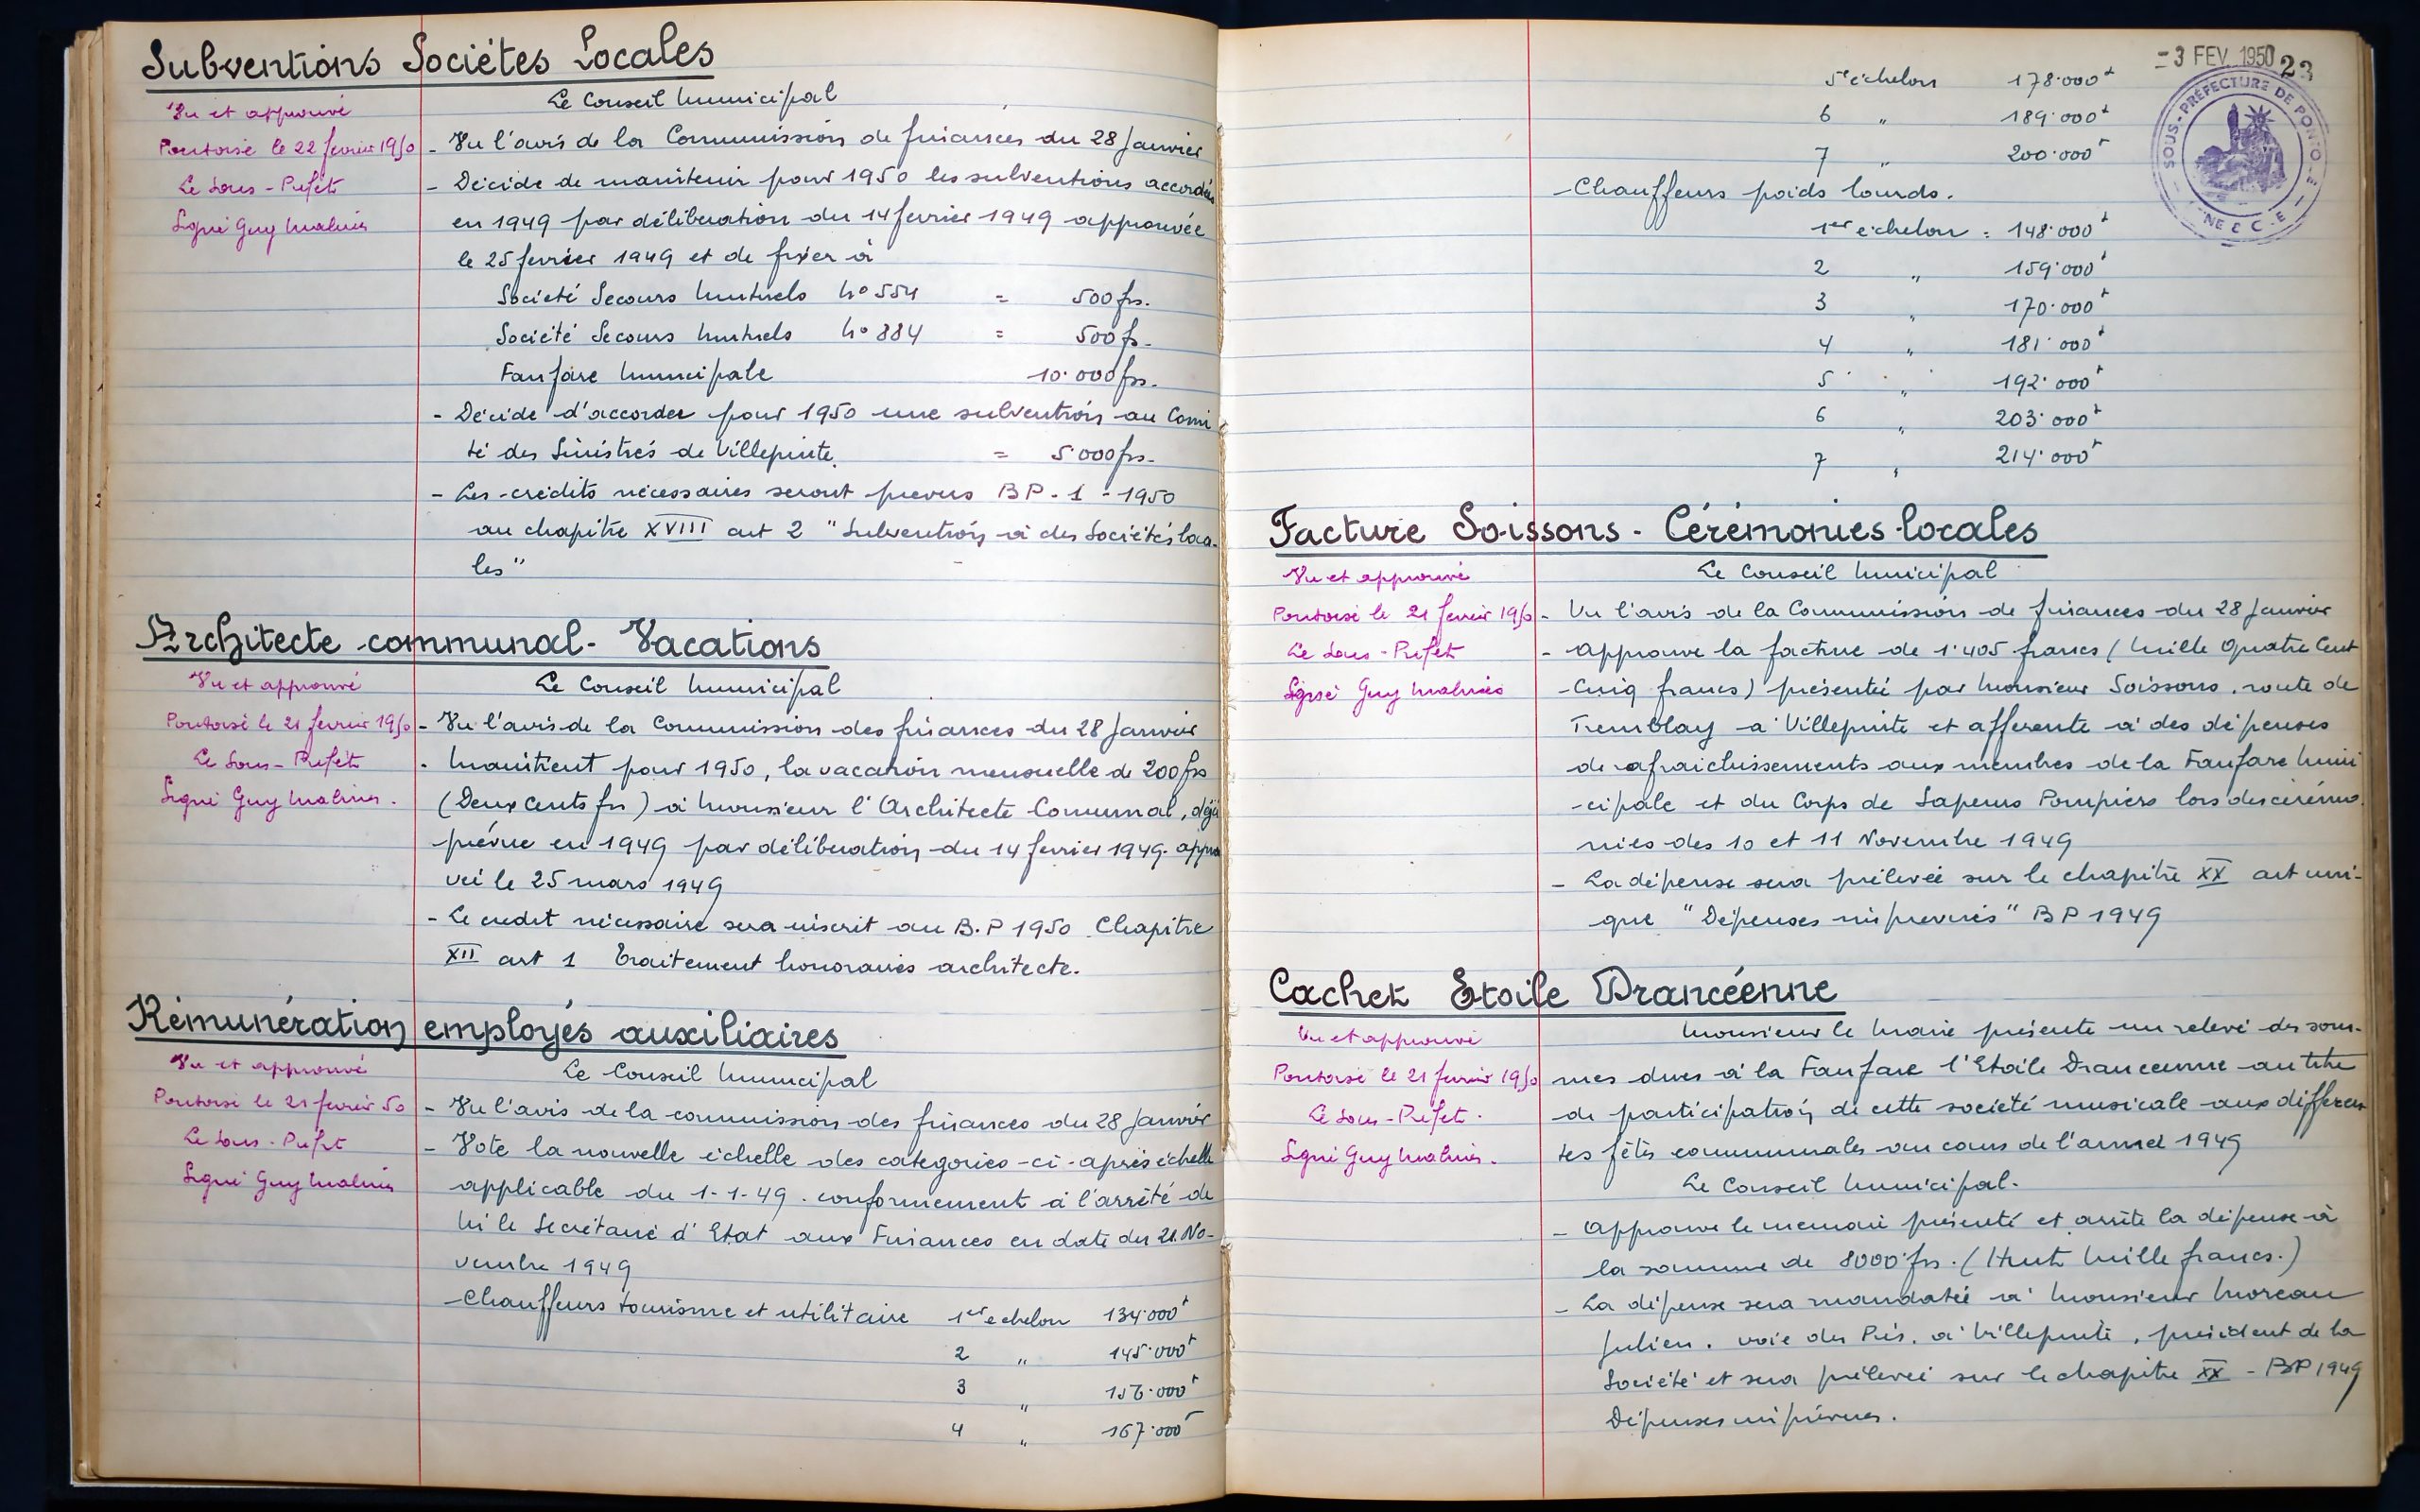 Subventions Sociétes Locales
Vu et approuvé
Pontoise le 22 fevrier 1950
Le Sous-Préfet
Signé Guy Malines
Le Conseil Municipal
- Vu l'avis de la Commission de finances du 28 Janvier
- Décide de maintenir pour 1950 les subventions accordées
en 1949 par déliberation du 14 fevrier 1949 approuvée
le 25 fevrier 1949 et de fixer à
Société Secours Mutuels No 554 = 500 frs.
Société Secours Mutuels No 884 = 500 f.-
Fanfare Municipale 10.000 frs.
- Décide d'accorder pour 1950 une subvention au Comi
té des Sinistrés de Villepinte. = 5.000 frs.
- Les crédits nécessaires seront prévus BP - 1 - 1950
au chapitre XVIII art 2 "Subvention à des Sociétés loca-
les"
Architecte communal - Vacations
Vu et approuvé
Pontoise le 21 fevrier 1950
Le Sous-Préfet
Signé Guy Malines.
Le Conseil Municipal
- Vu l'avis de la Commission des finances du 28 Janvier
- Maintient pour 1950, la vacation mensuelle de 200 frs
(Deux cents frs) à Monsieur l'Architecte Communal, déjà
prévue en 1949 par déliberation du 14 fevrier 1949. appou
vée le 25 mars 1949
- Le credit nécessaire sera inscrit au B.P 1950 Chapitre
XII art 1 Traitement honoraires architecte.
Rémunération employés auxiliaires
Vu et approuvé
Pontoise le 21 fevrier 50
Le Sous-Préfet
Signé Guy Malines
Le Conseil Municipal
- Vu l'avis de la commission des finances du 28 Janvier
- Vote la nouvelle échelle des categories ci-après échelle
applicable du 1-1-49. conformement à l'arrêté de
Mr le Secrétaire d'Etat aux Finances en date du 21 No-
vembre 1949
- Chauffeurs tourisme et utilitaire 1er echelon 134.000 f
2 " 145.000 f
3 " 156.000 f
4 " 167.000 f
- 3 FEV. 1950 23
SOUS-PRÉFECTURE DE PONTOISE
5e échelon 178.000 f
6 " 189.000 f
7 " 200.000 f
- Chauffeurs poids lourds.
1er échelon = 148.000 f
2 " 159.000 f
3 " 170.000 f
4 " 181.000 f
5 " 192.000 f
6 " 203.000 f
7 " 214.000 f
Facture Soissons - Cérémonies locales
Vu et approuvé
Pontoise le 21 fevrier 1950
Le Sous-Préfet
Signé Guy Malines
Le Conseil Municipal
- Vu l'avis de la Commission de finances du 28 Janvier
- Approuve la facture de 1.405 francs (Mille Quatre Cent
Cinq francs) présentée par Monsieur Soissons, route de
Tremblay à Villepinte et afferente à des dépenses
de rafraichissements aux membres de la Fanfare Muni
-cipale et du Corps de Sapeurs Pompiers lors des cérémo.
nies des 10 et 11 Novembre 1949
- La dépense sera prélevée sur le chapitre XX art uni-
que "Dépenses imprevues" BP 1949
Cachet Etoile Drancéenne
Vu et approuvé
Pontoise le 21 fevrier 1950
Le Sous-Préfet.
Signé Guy Malines.
Monsieur le Maire présente un relevé des som-
mes dues à la Fanfare l'Etoile Dranceenne au titre
de participation de cette société musicale aux differen
tes fêtes communales au cours de l'année 1949
Le Conseil Municipal.
- Approuve le memoire présenté et arrête la dépense à
la somme de 8000 frs. (Huit Mille francs.)
- La dépense sera mandatée à Monsieur Moreau
Julien. voie des Prés. à Villepinte, président de la
Société et sera prélevée sur le chapitre XX - BP 1949
Dépenses imprévues.